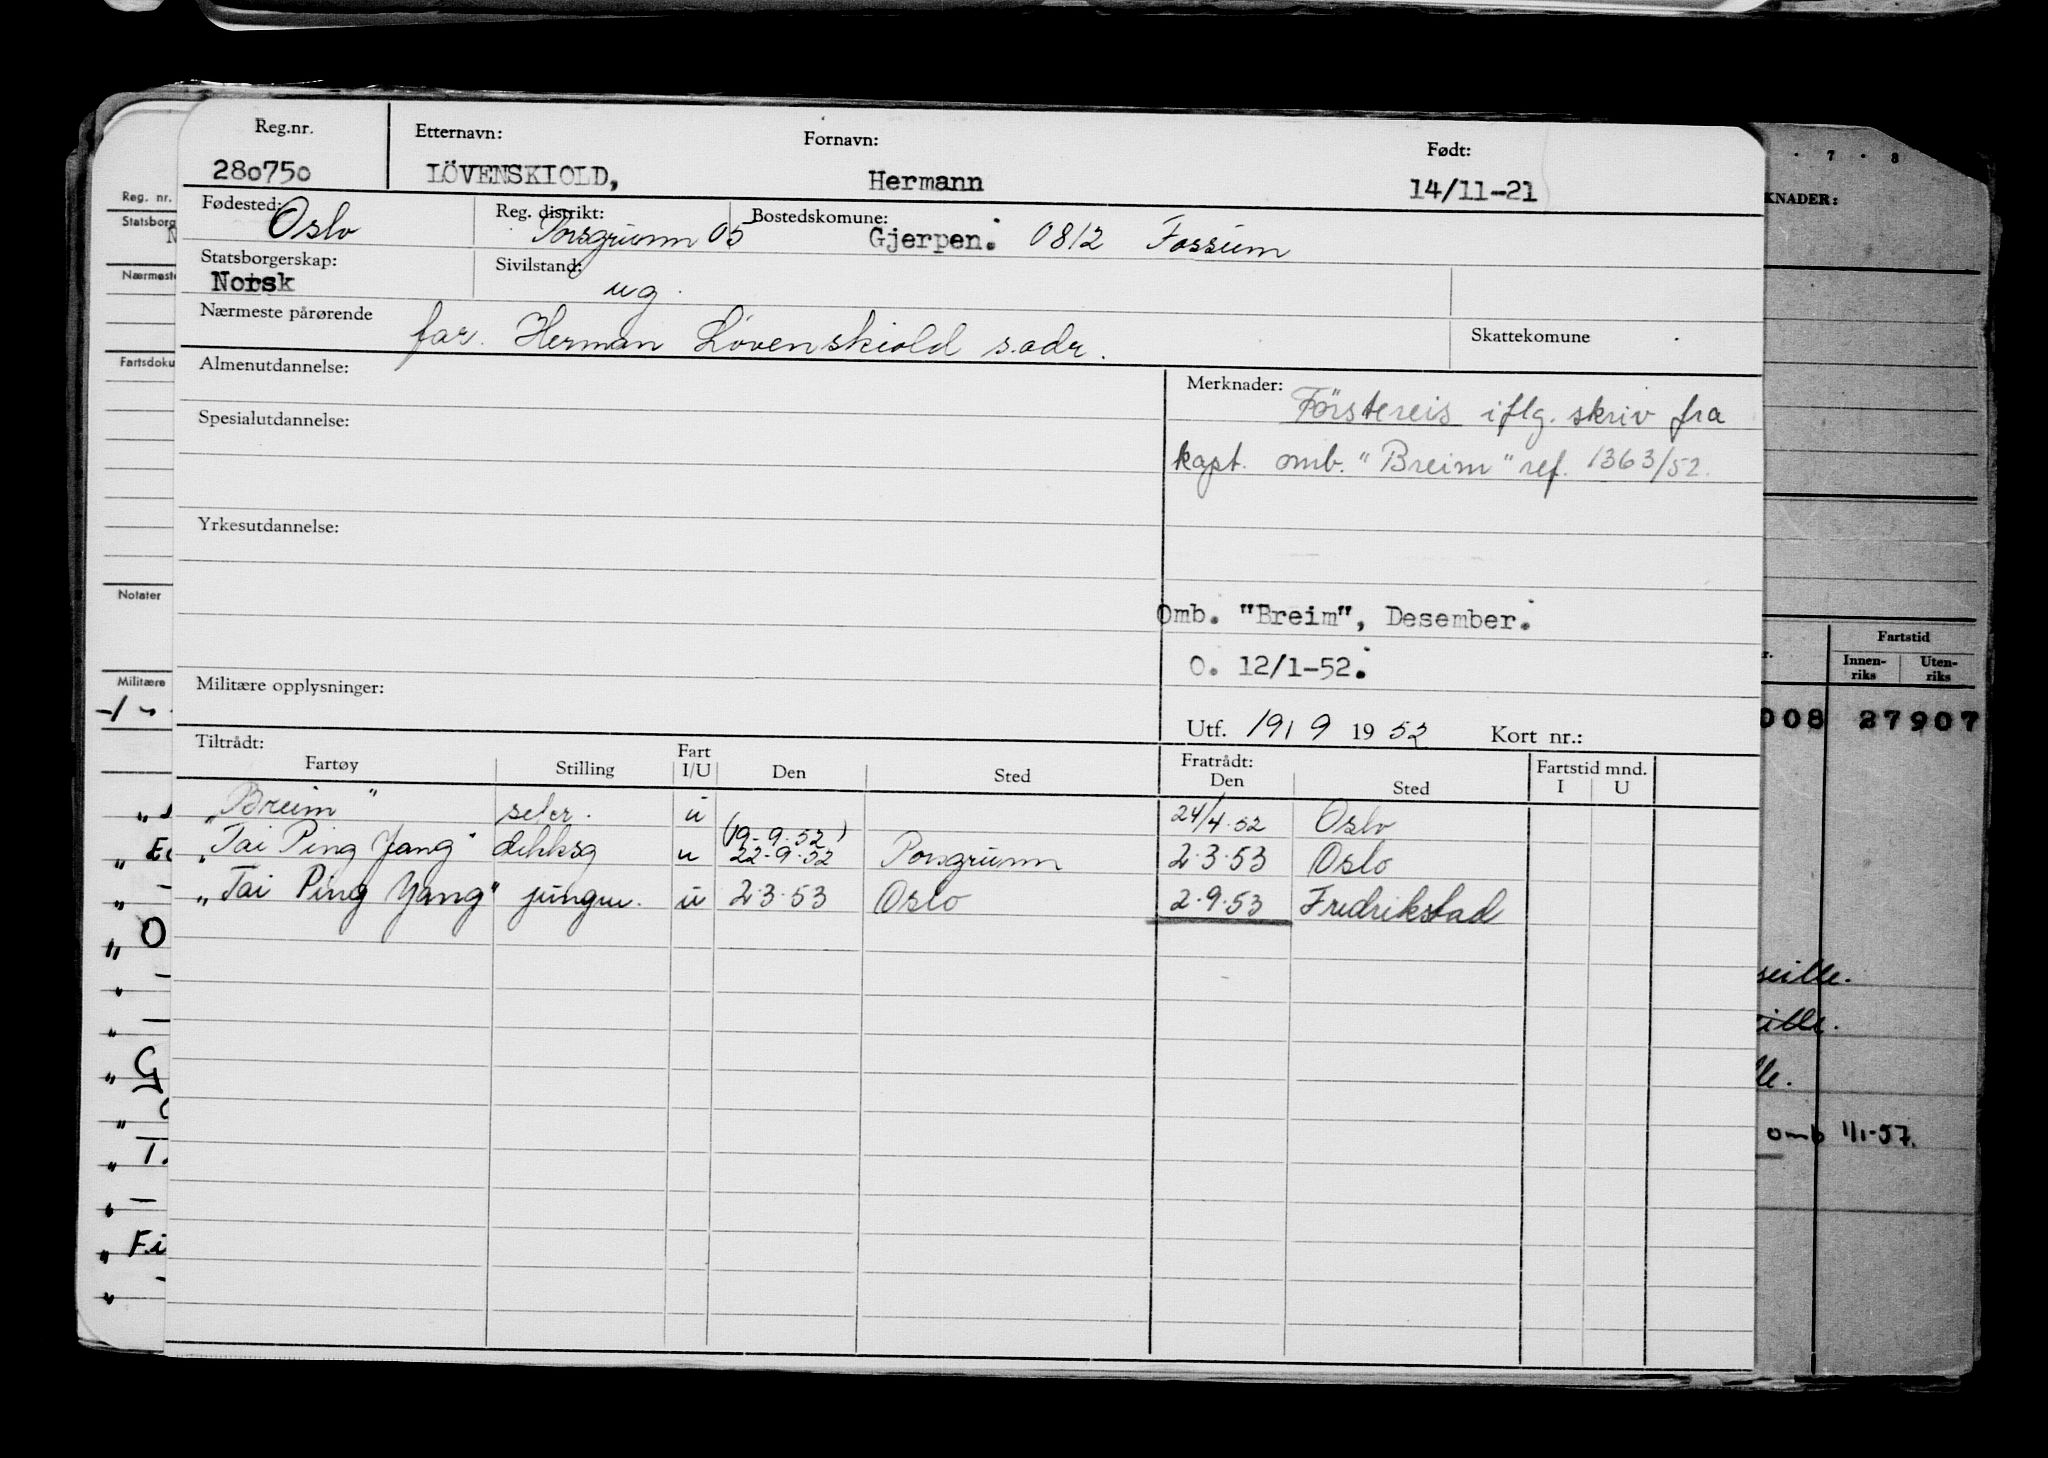 Reg.nr. Etternavn: Fornavn: Født:
280750 LÖVENSKIOLD, Hermann 14/11-21
Fødested: Oslo Reg. distrikt: Porsgrunn 05 Bostedskomune: Gjerpen. 0812 Fossum
Statsborgerskap: Norsk Sivilstand: ug.
Nærmeste pårørende far. Herman Lövenskiold s.adr. Skattekomune
Almenutdannelse: Merknader: Förstereis iflg. skriv fra
Spesialutdannelse: kapt. omb. "Breim" ref. 1363/52.
Yrkesutdannelse:
Omb. "Breim", Desember.
O. 12/1-52.
Militære opplysninger:
Utf. 19/9 1952 Kort nr.:
Tiltrådt: Fratrådt: Fartstid mnd.
Fartøy Stilling Fart I/U Den Sted Den Sted I U
"Breim" u 24/4.52 Oslo
(19-9.52)
"Tai Ping Yang" dekksg u 22-9.52 Porsgrunn 2.3.53 Oslo
"Tai Ping Yang" jungm. u 2.3.53 Oslo 2.9.53 Fredrikstad
Reg. nr.
Statsborg
N
Nærmeste
Fartsdoku
Notater
Militære
F.i
7 · 8
KNADER:
Fartstid
r. Innen-riks Uten-riks
008 27907
seille.
ille.
lle.
omb 1/1-57.